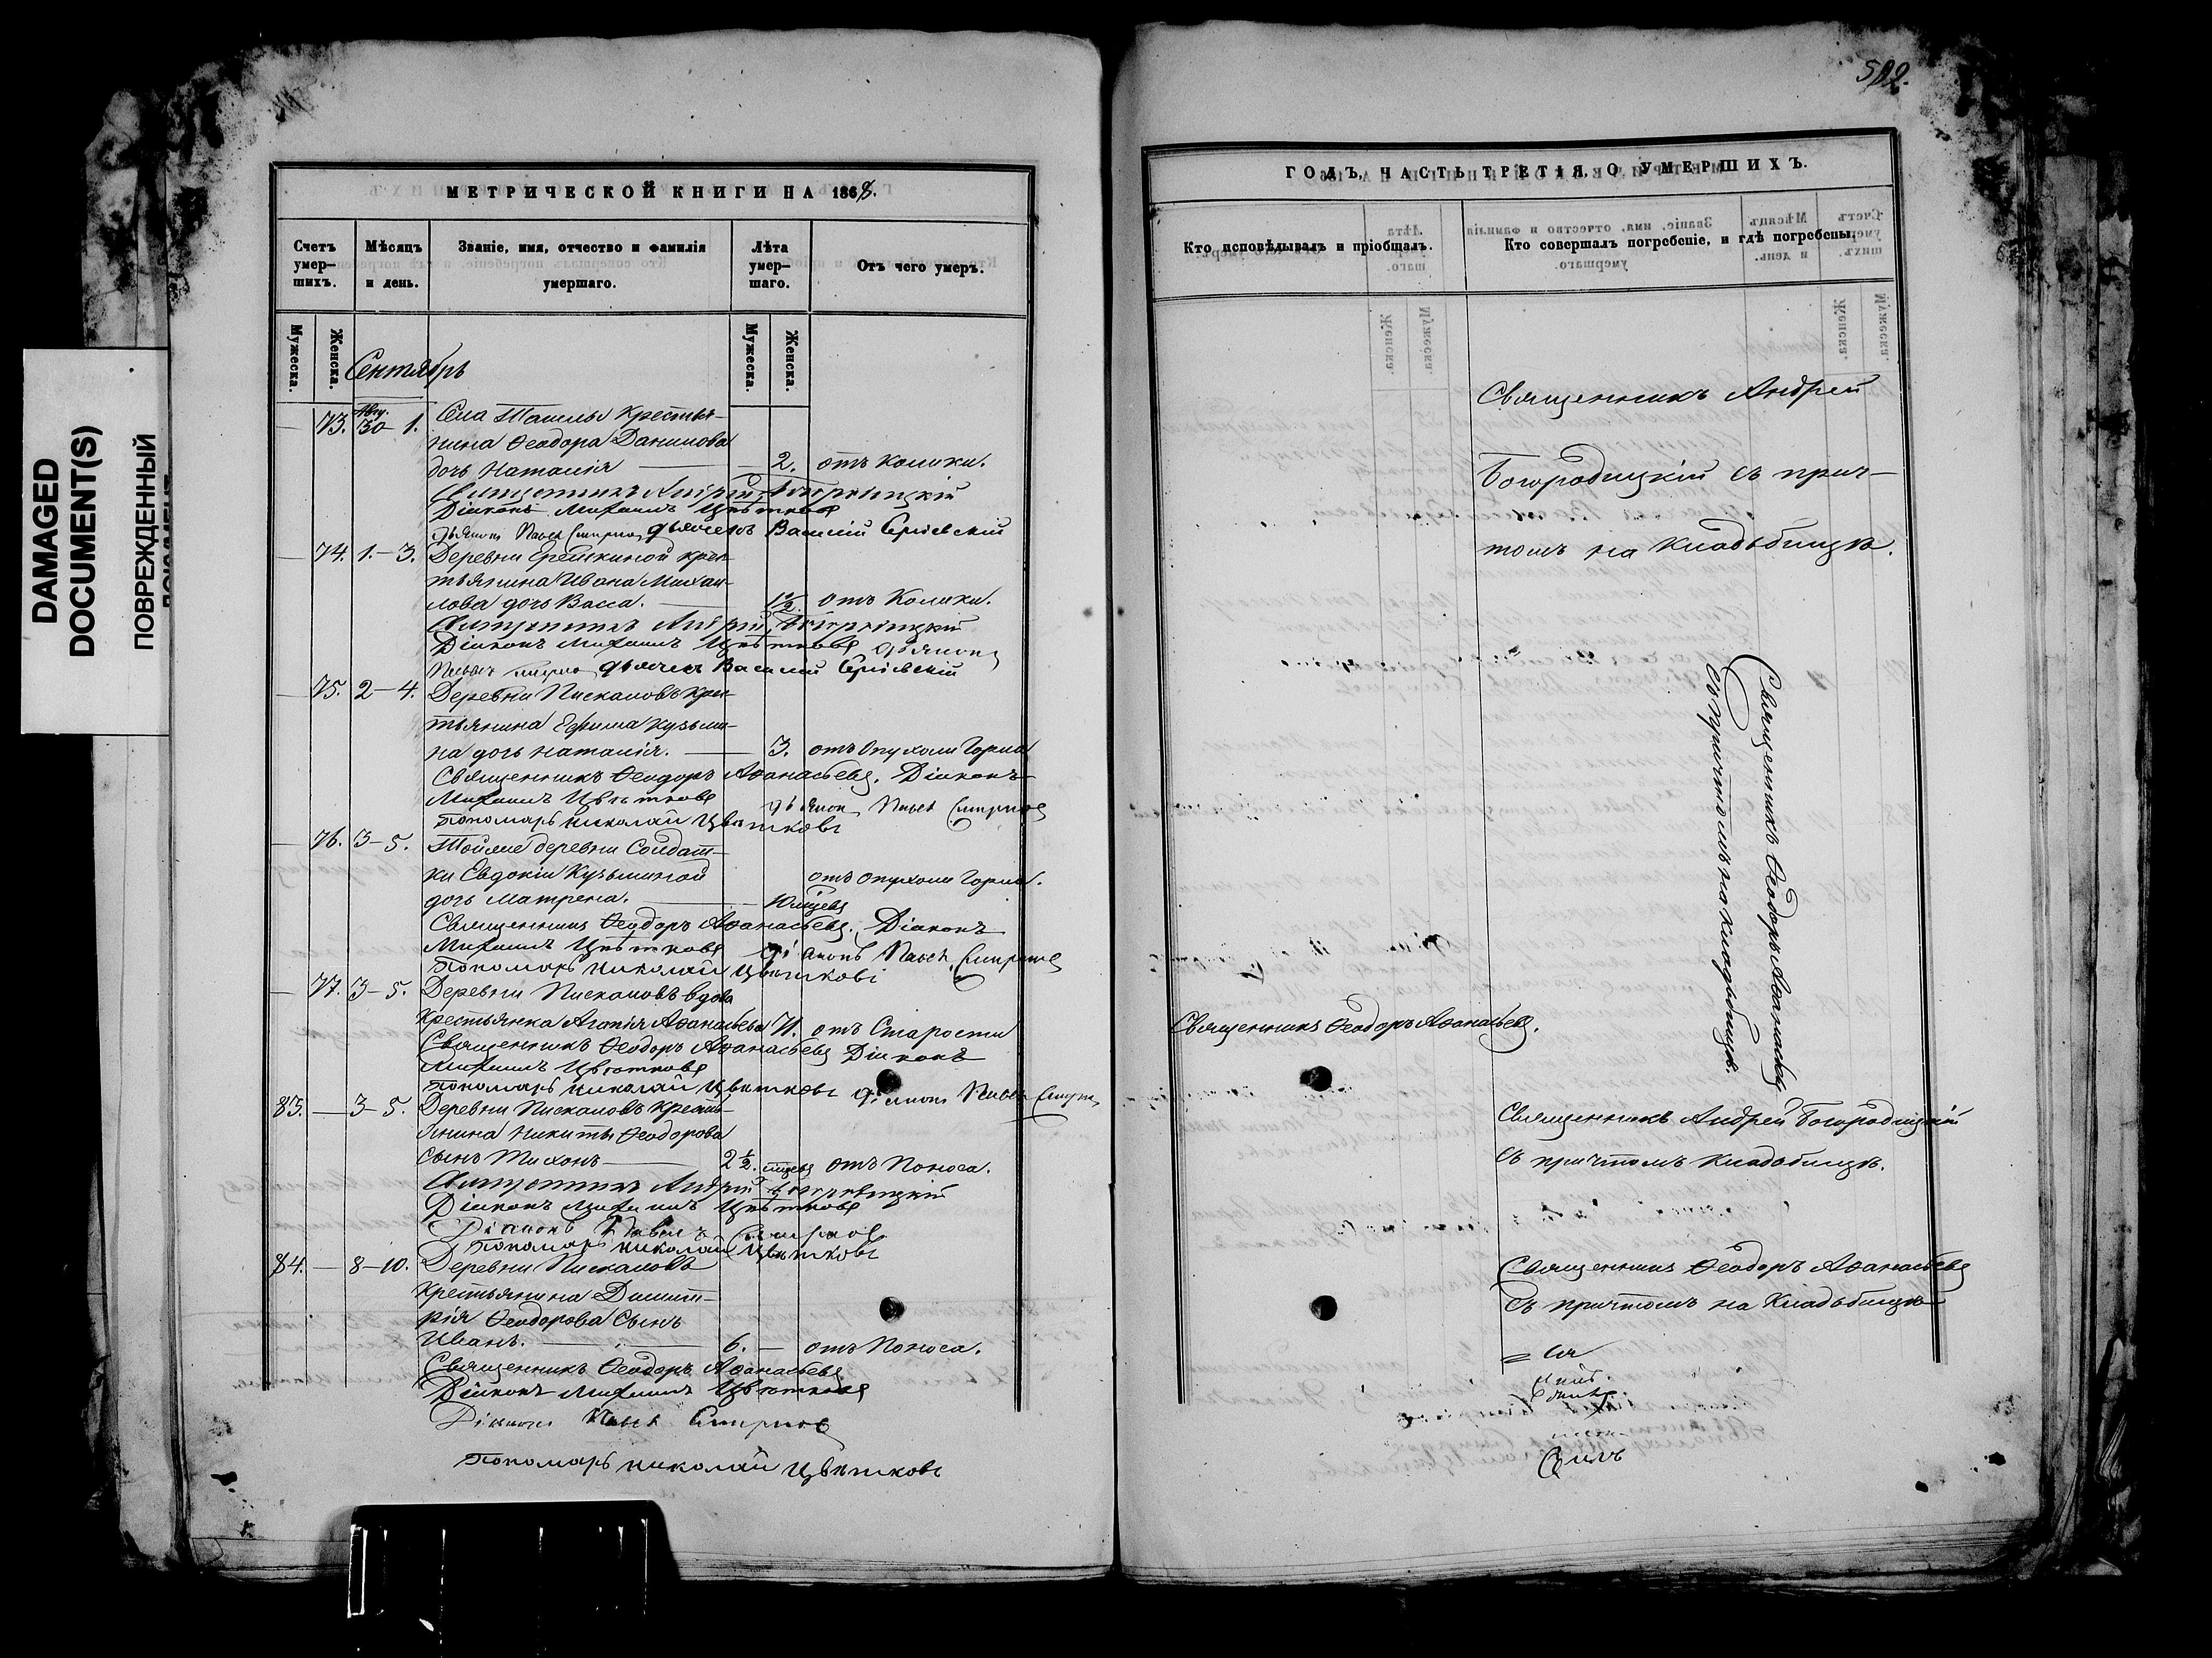 DAMAGED
DOCUMENT(S)
ПОВРЕЖДЕННЫЙ
МЕТРИЧЕСКОЙ КНИГИ НА 1868.
Счетъ умер-шихъ.
Мѣсяцъ и день.
Званіе, имя, отчество и фамилія умершаго.
Лѣта умер-шаго.
Отъ чего умеръ.
Мужеска.
Женска.
Мужеска.
Женска.
Сентябрь
— 73. Авгу. 30 1. Села Ташлы Крестья-
нина Ѳеодора Данилова
дочь Наталія — 2. отъ колики.
Священникъ Андрей Богородицкій
Діаконъ Михаилъ Цвѣтковъ
Діаконъ Павелъ Смирновъ дьячекъ Василій Сергіевскій
— 74. 1.—3. Деревни Ерейкиной крес-
тьянина Ивана Михай-
лова дочь Васса. — 1½. отъ Колики.
Священникъ Андрей Богородицкій
Діаконъ Михаилъ Цвѣтковъ Діаконъ
Павелъ Смирновъ дьячекъ Василій Сергіевскій
— 75. 2—4. Деревни Пискаловъ крес-
тьянина Ефима Кузьми-
на дочь Наталія. — 3. отъ Опухоли Горла
Священникъ Ѳеодоръ Аѳанасьевъ. Діаконъ
Михаилъ Цвѣтковъ Діаконъ Павелъ Смирновъ
Пономарь Николай Цвѣтковъ
— 76. 3—5. Тойже деревни Солдат-
ки Евдокіи Кузьминой отъ опухоли Горла.
дочь Матрена. —
Священникъ Ѳеодоръ Аѳанасьевъ. Діаконъ
Михаилъ Цвѣтковъ Діаконъ Павелъ Смирновъ
Пономарь Николай Цвѣтковъ
— 77. 3—5. Деревни Пискаловъ вдова
Крестьянка Агапія Аѳанасьева 71. отъ Старости
Священникъ Ѳеодоръ Аѳанасьевъ Діаконъ
Михаилъ Цвѣтковъ
Пономарь Николай Цвѣтковъ Діаконъ Павелъ Смирн
83. — 3—5. Деревни Пискаловъ Кресть-
янина Никиты Ѳеодорова
сынъ Тихонъ — 2½. отъ Поноса.
Священникъ Андрей Богородицкій
Діаконъ Михаилъ Цвѣтковъ
Діаконъ Павелъ Смирновъ
Пономарь Николай Цвѣтковъ
84. — 8—10. Деревни Пискаловъ
Крестьянина Димит-
рія Ѳеодорова Сынъ
Иванъ. — 6. — отъ Поноса.
Священникъ Ѳеодоръ Аѳанасьевъ
Діаконъ Михаилъ Цвѣтковъ
Діаконъ Павелъ Смирновъ
Пономарь Николай Цвѣтковъ
ГОДЪ, ЧАСТЬ ТРЕТІЯ, О УМЕРШИХЪ.
Кто исповѣдывалъ и пріобщалъ.
Кто совершалъ погребеніе, и гдѣ погребены.
Священникъ Андрей
Богородицкій съ прич-
томъ на Кладьбищѣ.
Священникъ Ѳеодоръ Аѳанасьевъ
съ причтомъ на кладьбищѣ.
Священникъ Ѳеодоръ Аѳанасьевъ.
Священникъ Андрей Богородицкій
съ причтомъ Кладбищѣ.
Священникъ Ѳеодоръ Аѳанасьевъ
съ причтомъ на Кладьбищѣ